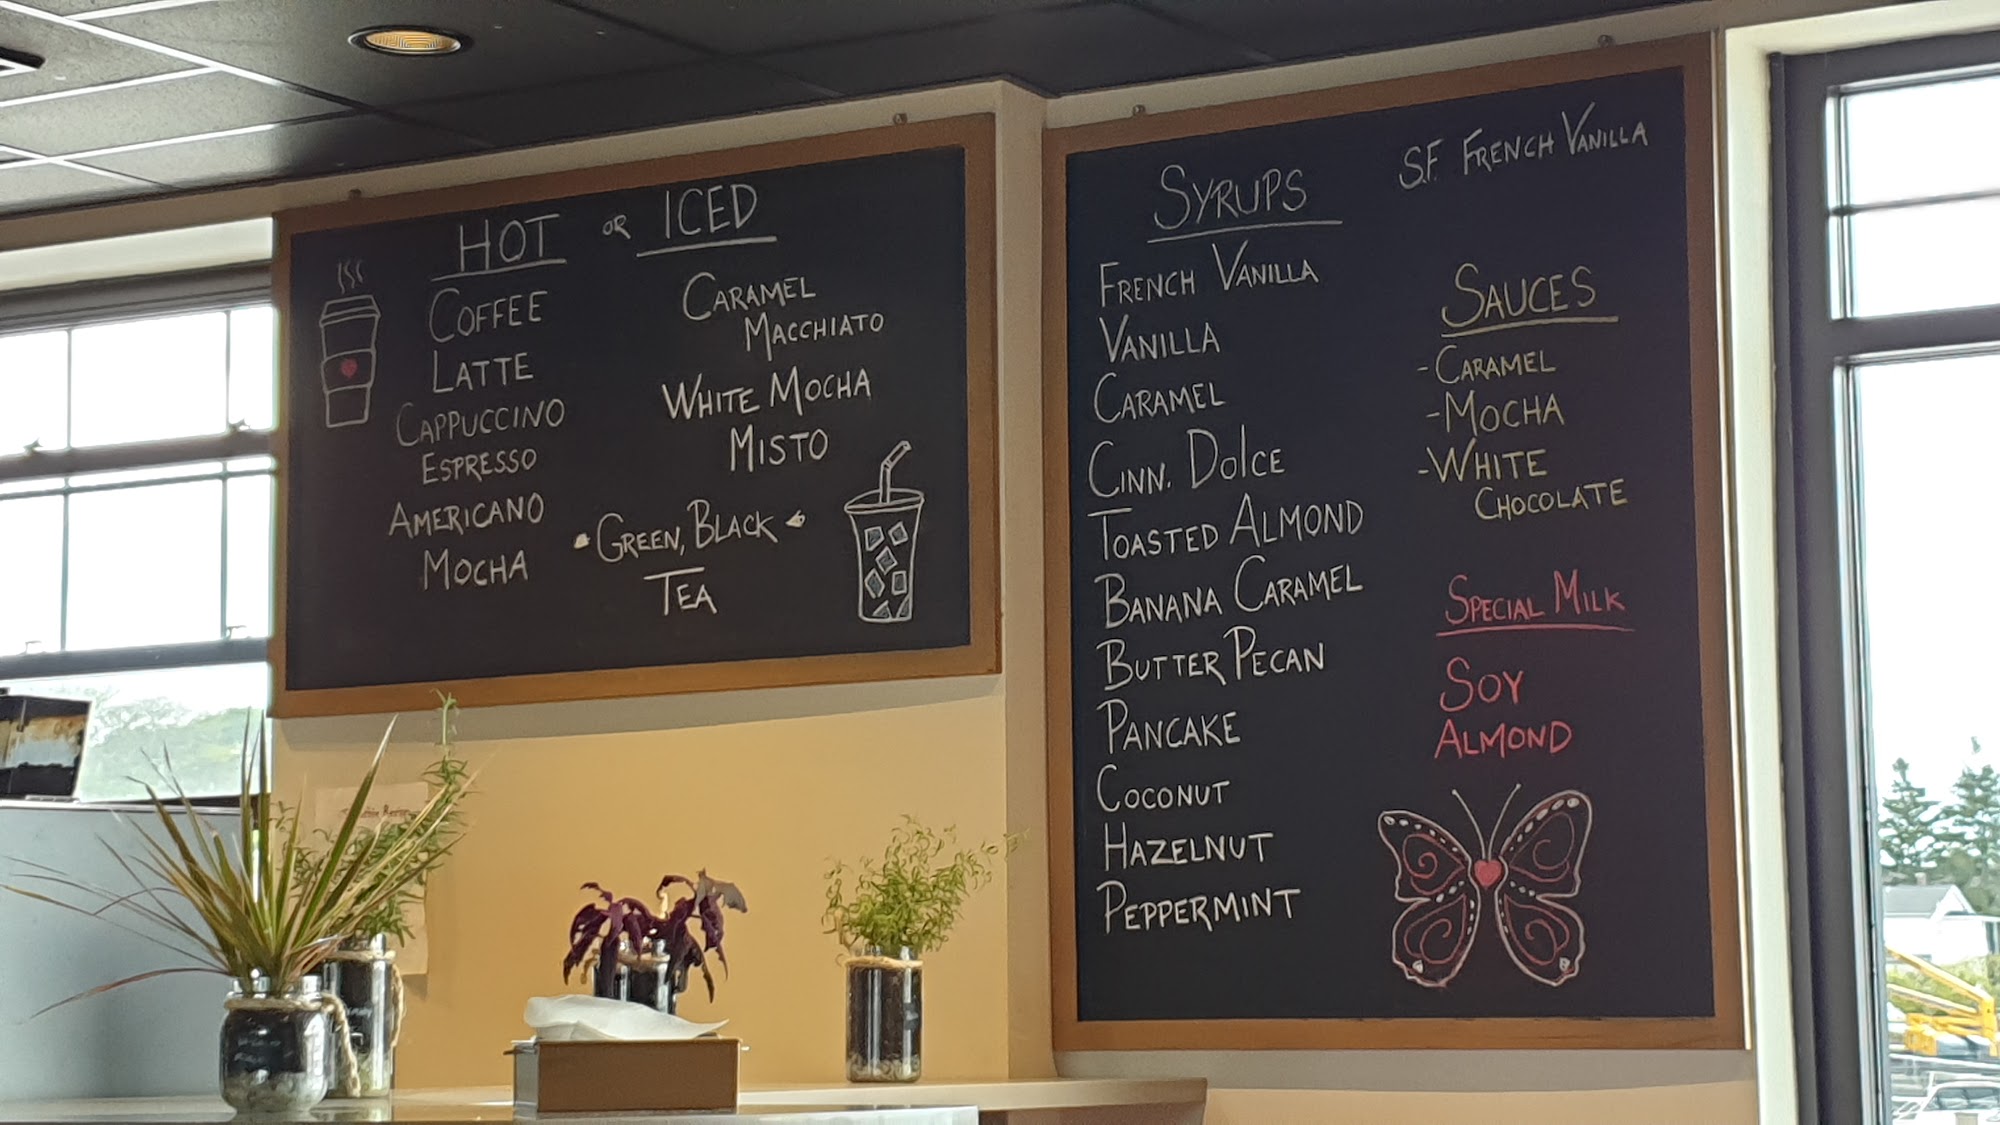 HOT OR ICED
COFFEE
LATTE
CAPPUCCINO
ESPRESSO
AMERICANO
MOCHA
CARAMEL
MACCHIATO
WHITE MOCHA
MISTO
GREEN, BLACK
TEA
SYRUPS
FRENCH VANILLA
VANILLA
CARAMEL
CINN. DOLCE
TOASTED ALMOND
BANANA CARAMEL
BUTTER PECAN
PANCAKE
COCONUT
HAZELNUT
PEPPERMINT
S.F. FRENCH VANILLA
SAUCES
-CARAMEL
-MOCHA
-WHITE
CHOCOLATE
SPECIAL MILK
SOY
ALMOND